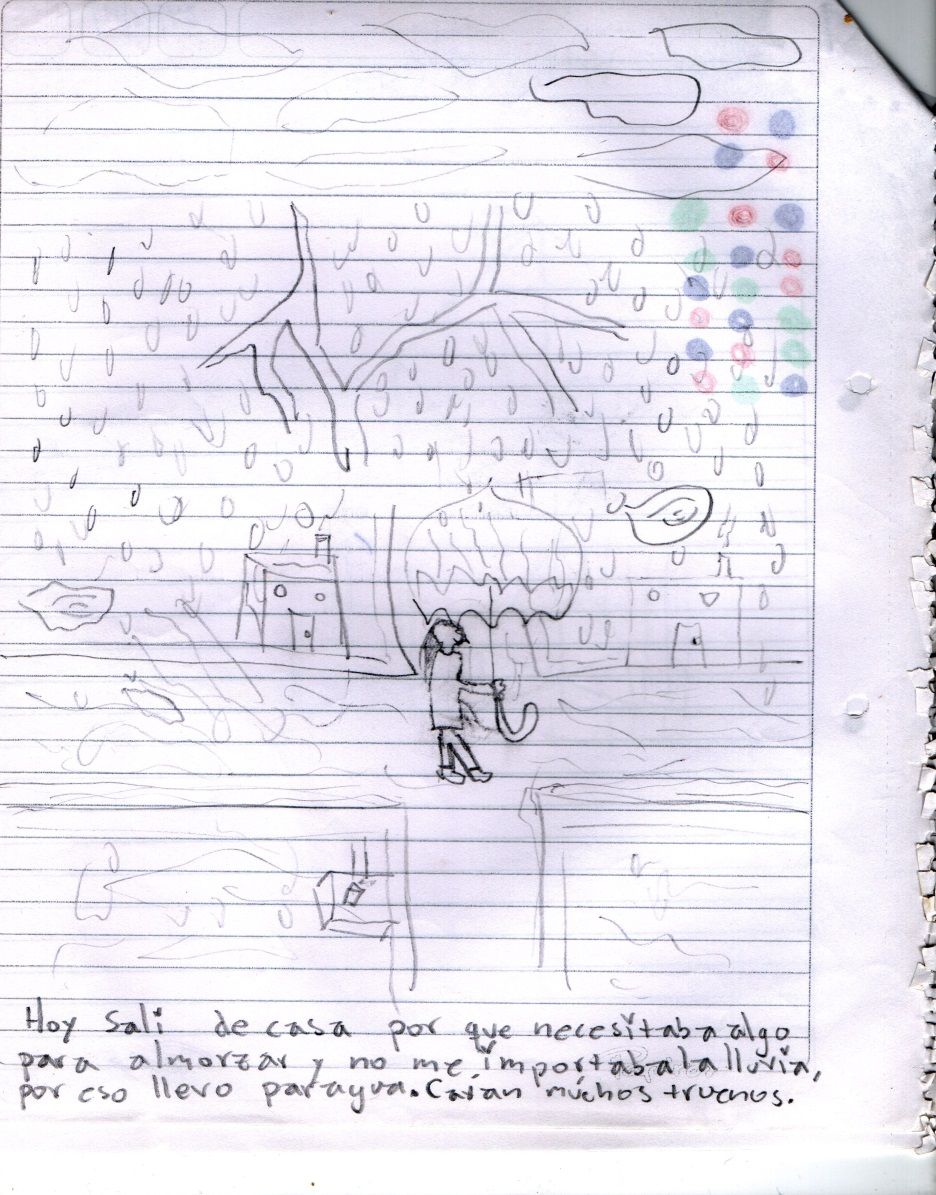 Hoy Sali de casa por que necesitaba algo
para almorzar y no me importaba la lluvia,
por eso llevo paragua. Caian muchos truenos.